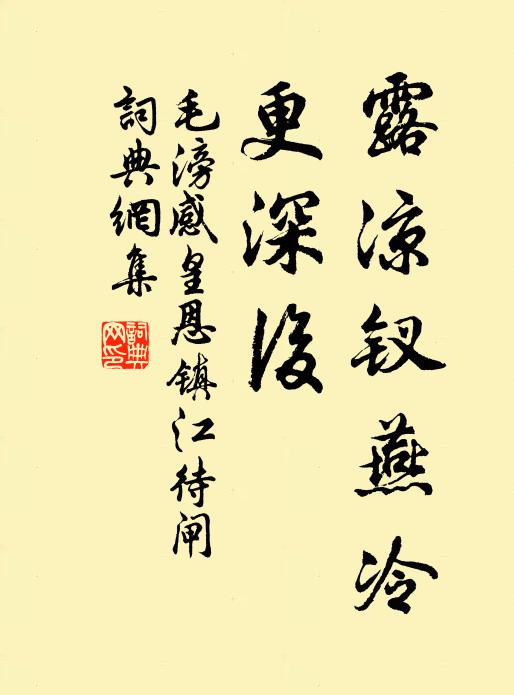 露凉钗燕冷
更深後
毛滂感皇恩镇江待闸
詞典網集
詞典網印